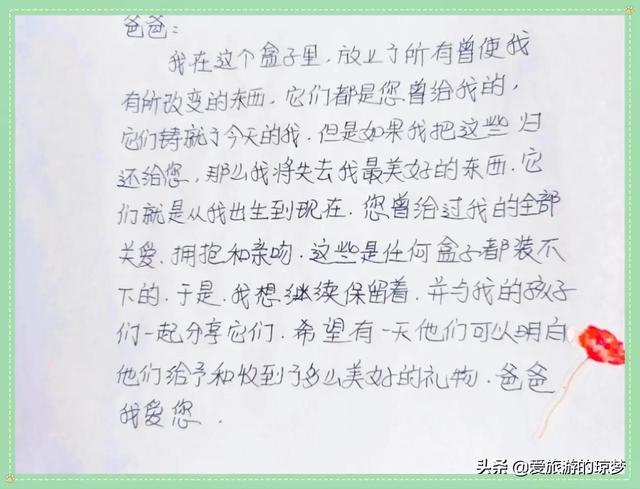 爸爸：
我在这个盒子里，放上了所有曾使我
有所改变的东西，它们都是您曾给我的，
它们铸就了今天的我，但是如果我把这些归
还给您，那么我将失去我最美好的东西．它
们就是从我出生到现在．您曾给过我的全部
关爱．拥抱和亲吻．这些是任何盒子都装不
下的．于是．我想继续保留着．并与我的孩子
们一起分享它们．希望有一天他们可以明白
他们给予和收到了多么美好的礼物．爸爸
我爱您．
头条@爱旅游的琼梦